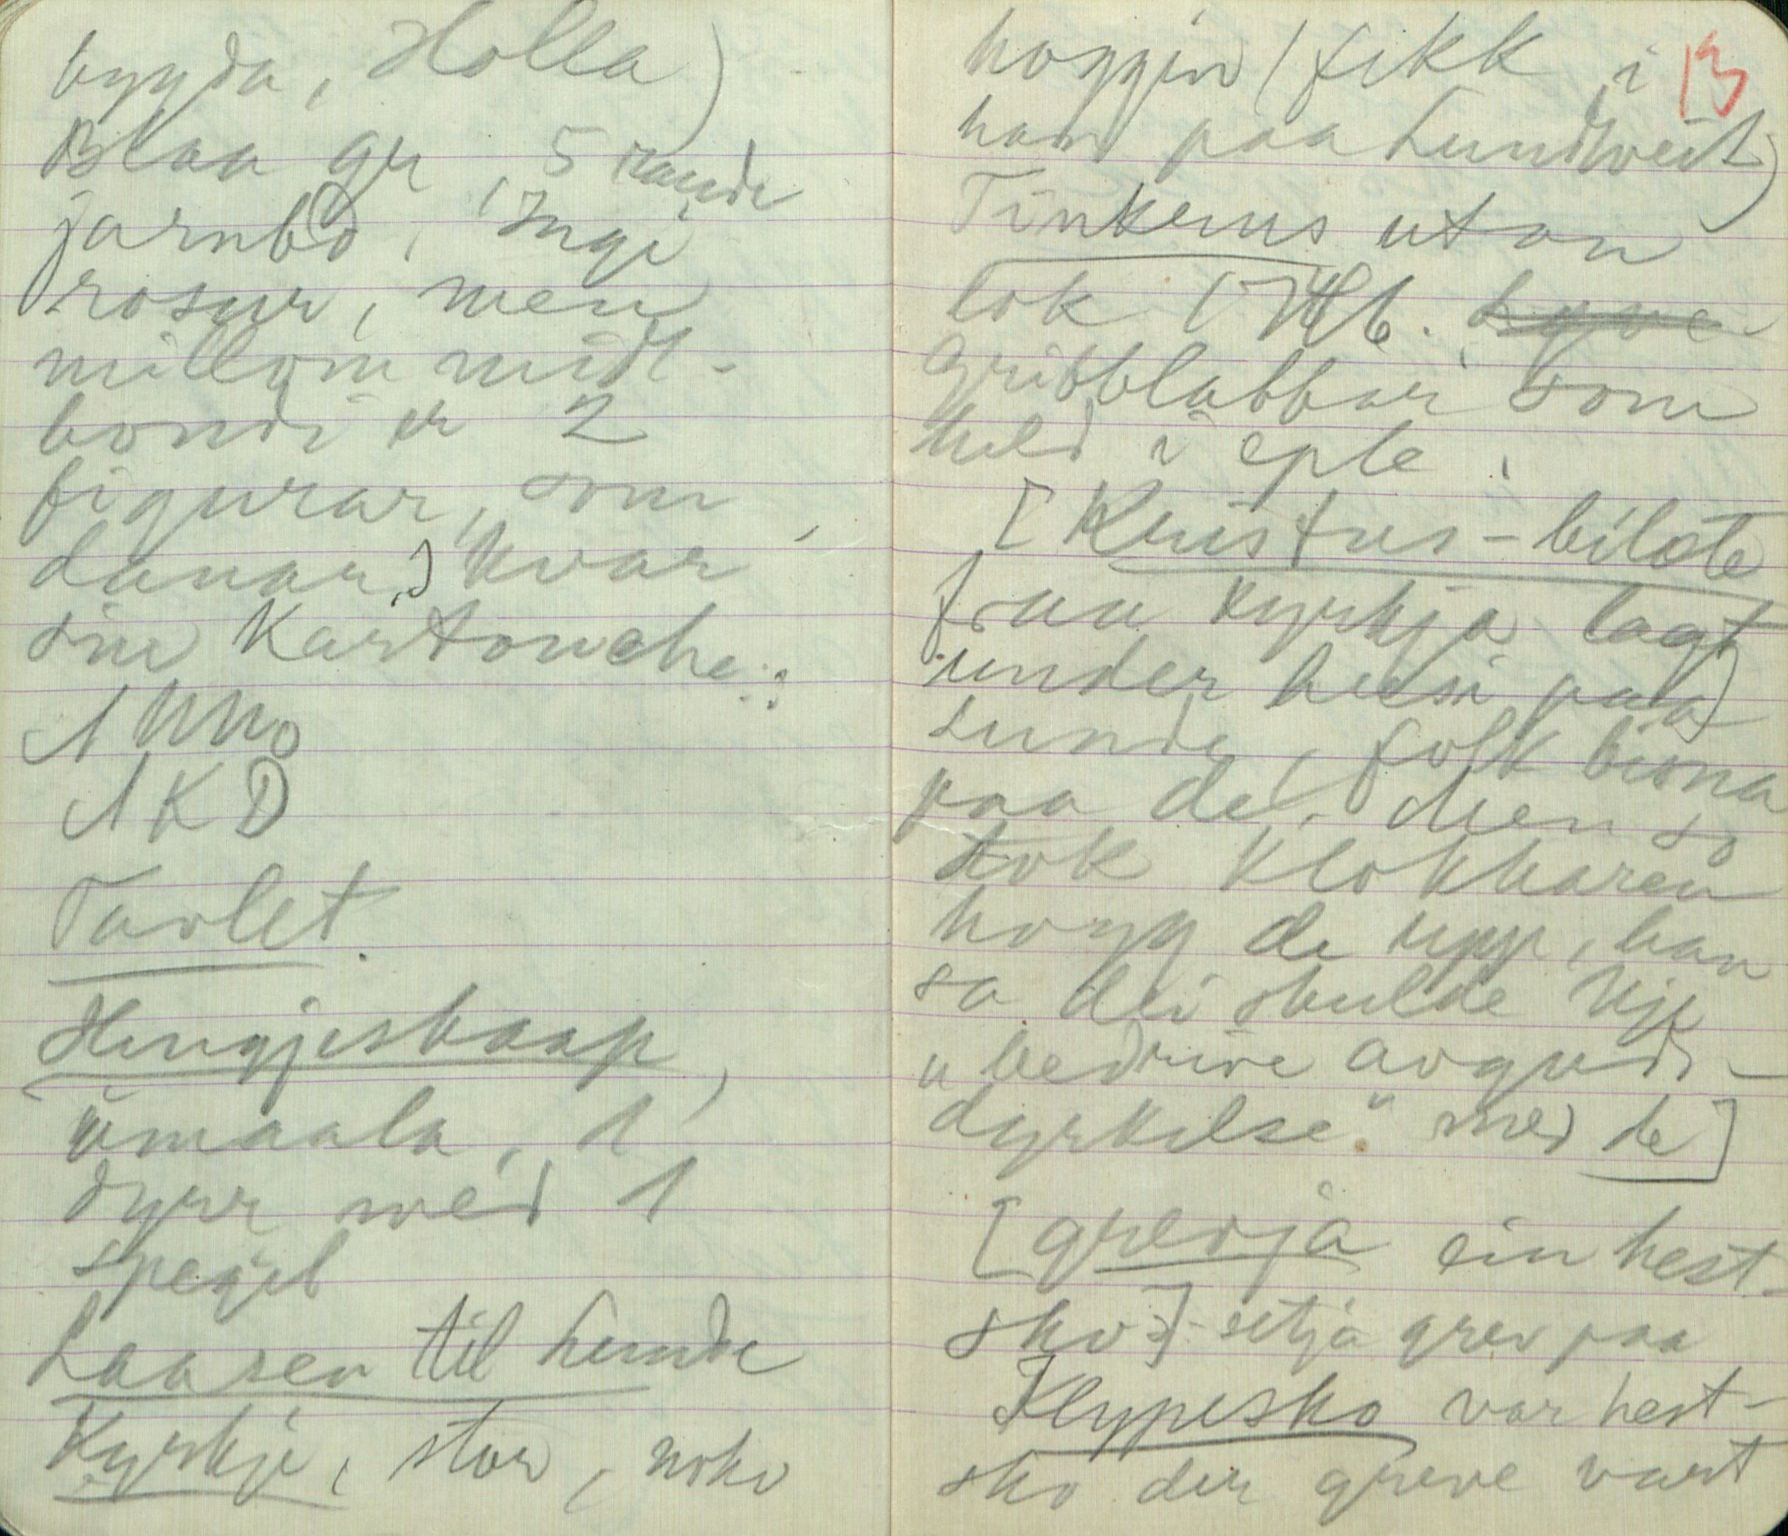 bygda, Holla)
Blaa gr, 5 raude
jarnbd, Ingi
rosur, men
millom midt-
bondi er 2
figurar, som
danar, kvar
sin Kartouche::
Anno
AKD
Tavlet.
Hengjeskaap,
umaala, 1
dyrr med 1
spegel
Laasen til Lunde
Kyrkje, stor, noko
hoggin (fekk i
han paa Lundtveit)
13
Tinkrus utan
lok (Hb. Lyve-
gribblabbar som
held i eple.
[Kristus-bilæte
fraa Kyrkja lagt
under husi paa
Lunde, folk bona
paa de. Men so
tok Klokkaren
hogg de upp, han
sa dei skulde kje
"bedrive avguds-
dyrkelse." med de]
[grevja ein hest-
sko] setja grev paa
Klypesko var hest-
sko der greve vart